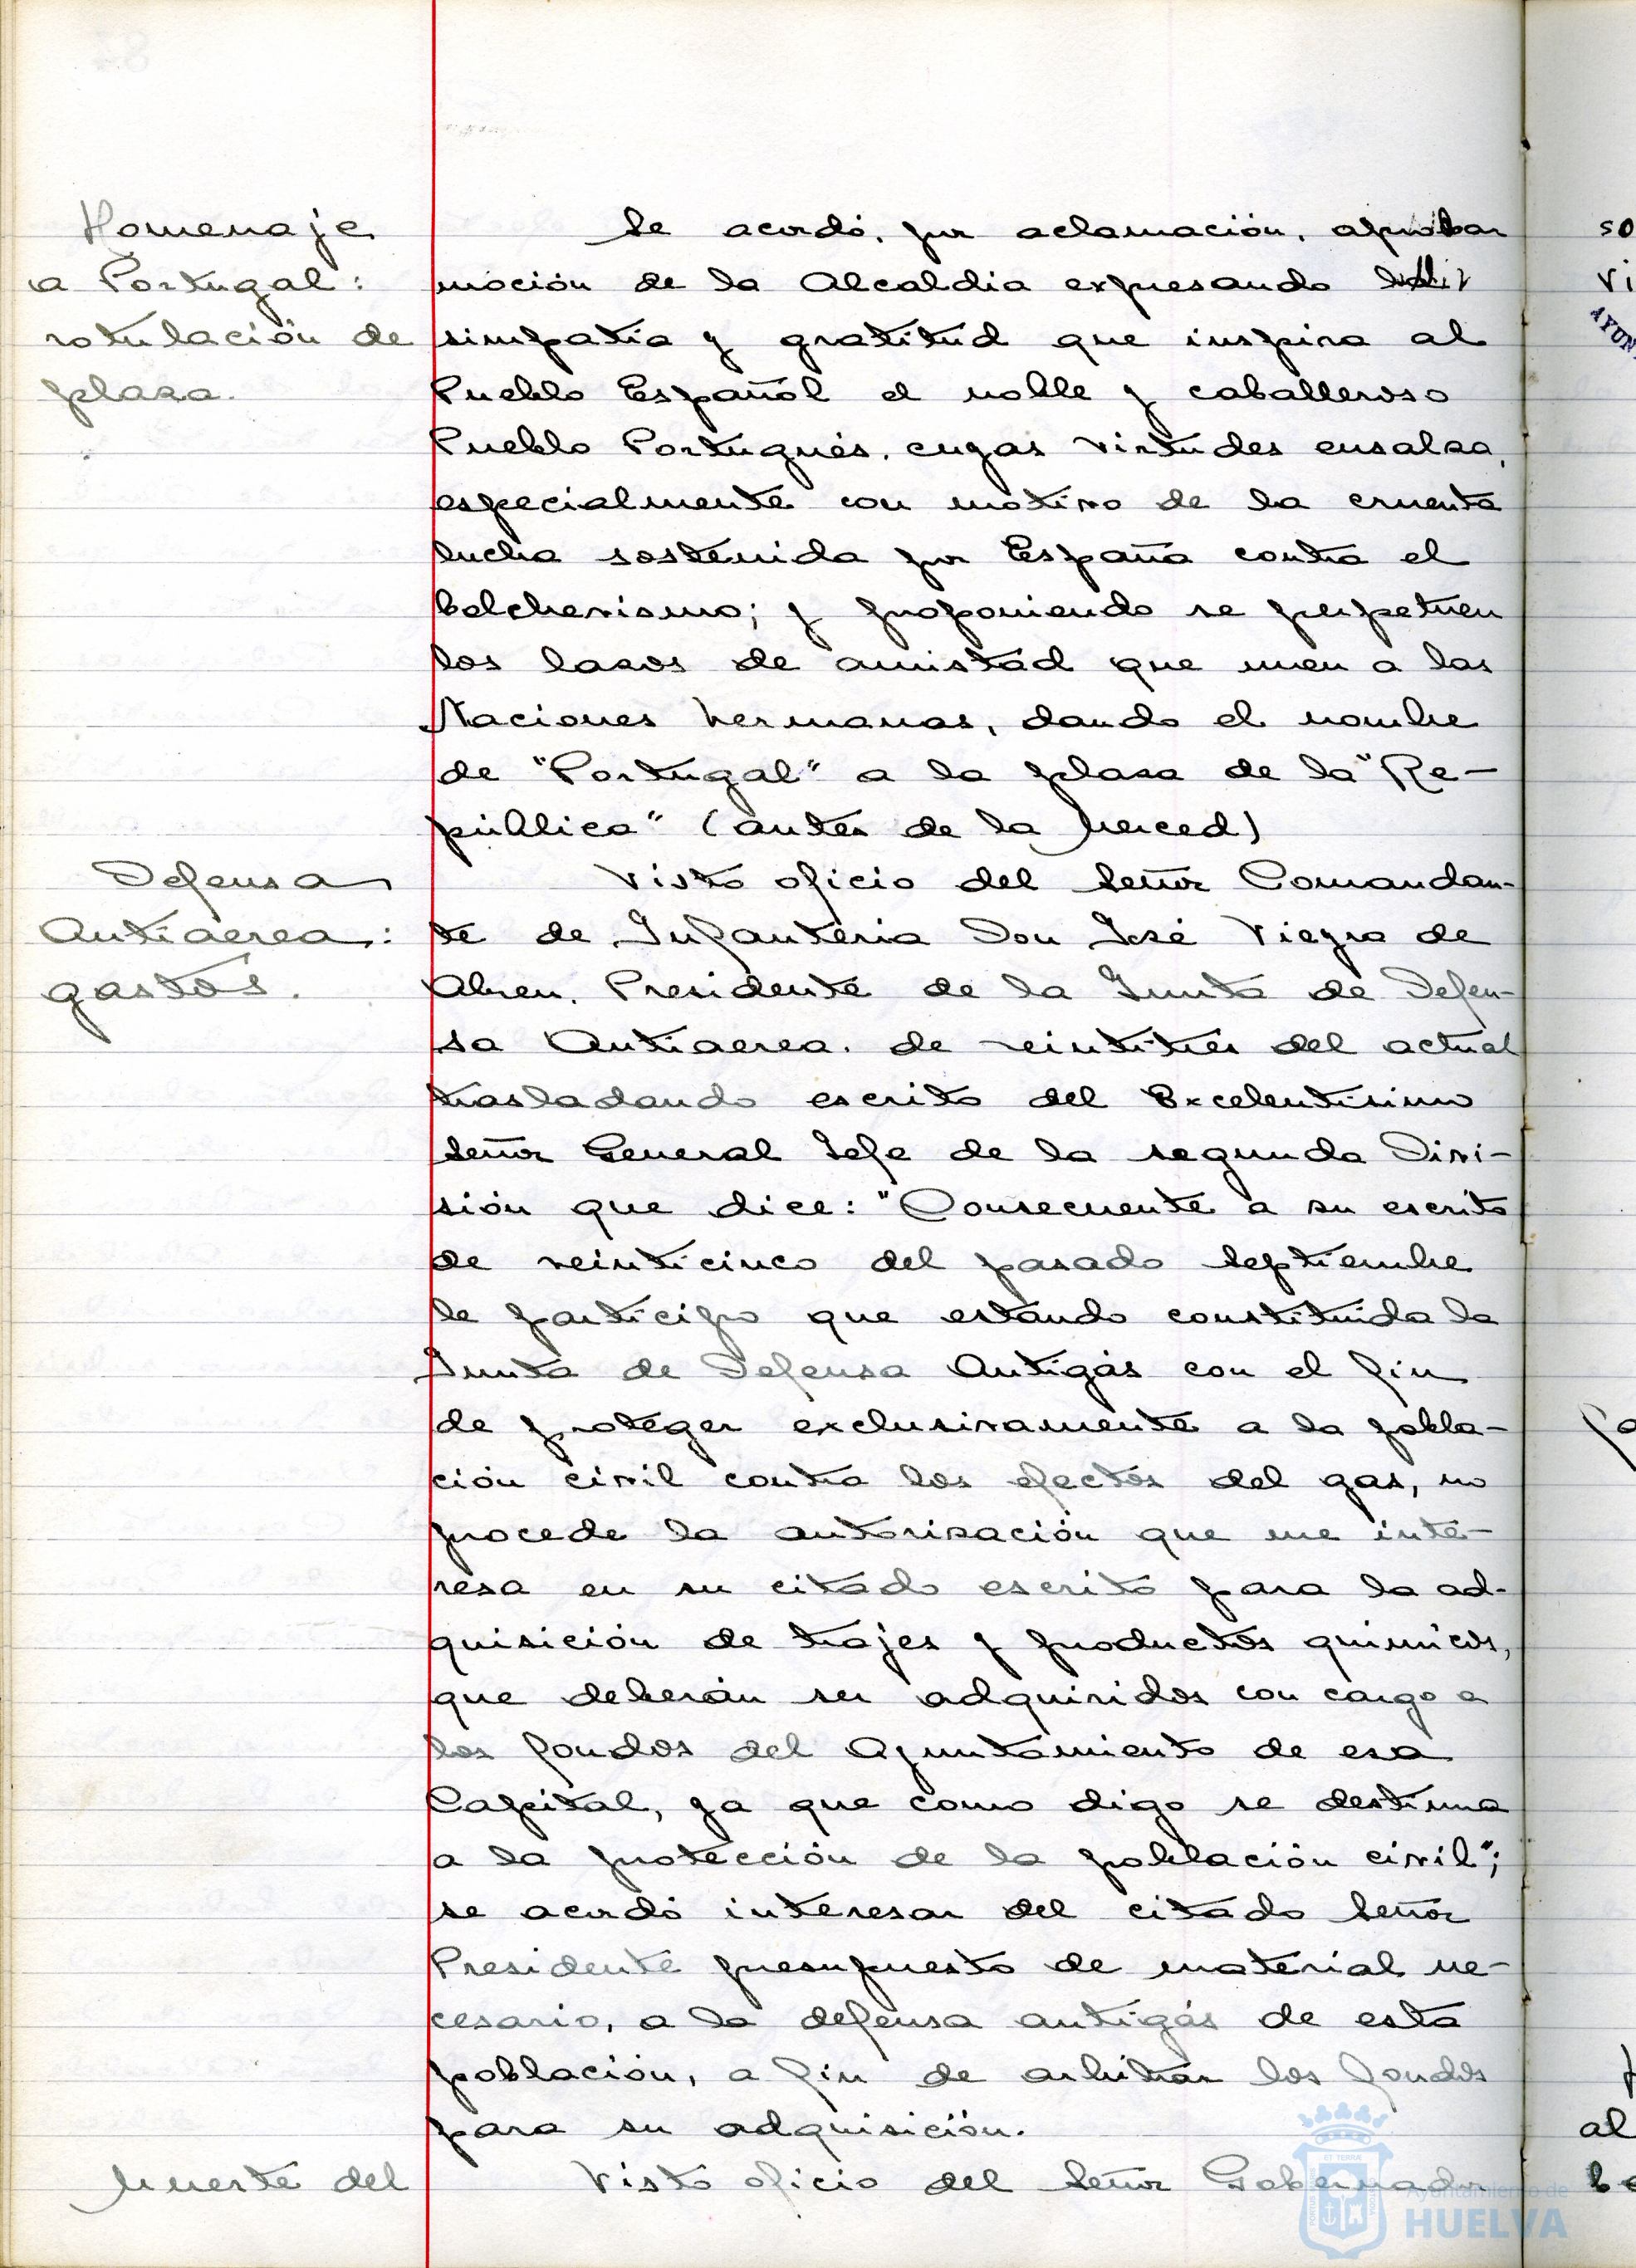 Homenaje
a Portugal:
rotulación de
plaza.
Se acordó, por aclamación, aprobar
moción de la Alcaldia expresando la
simpatia y gratitud que inspira al
Pueblo Español el noble y caballeroso
Pueblo Portugués, cuyas virtudes ensalza,
especialmente con motivo de la cruenta
lucha sostenida por España contra el
bolchevismo; y proponiendo se perpetuen
los lazos de amistad que unen a las
Naciones hermanas, dando el nombre
de "Portugal" a la plaza de la "Re-
pública" (antes de la Merced)
Defensa
Antiaerea:
gastos.
Visto oficio del Señor Comandan-
te de Infanteria Don José Viegra de
Abreu, Presidente de la Junta de Defen-
sa Antiaerea, de veintitres del actual
trasladando escrito del Excelentisimo
Señor General Jefe de la segunda Divi-
sión que dice: "Consecuente a su escrito
de veinticinco del pasado Septiembre
le participo que estando constituida la
Junta de Defensa Antigás con el fin
de proteger exclusivamente a la pobla-
ción civil contra los efectos del gas, no
procede la autorización que me inte-
resa en su citado escrito para la ad-
quisición de trajes y productos quimicos,
que deberán ser adquiridos con cargo a
los fondos del Ayuntamiento de esa
Capital, ya que como digo se destinna
a la protección de la población civil";
se acordó interesar del citado Señor
Presidente presupuesto de material ne-
cesario, a la defensa antigás de esta
población, a fin de arbitrar los fondos
para su adquisición.
Muerte del
Visto oficio del Señor Gobernador
Ayuntamiento de
HUELVA
so
vi
AYUN
al